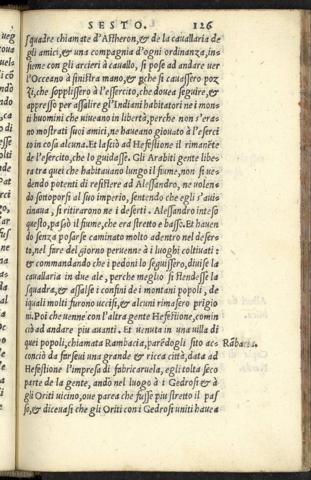 SESTO. 126
squadre chiamate d'Assheron, & de la cauallaria de
gli amici, & una compagnia d'ogni ordinanza, in-
sieme con gli arcieri à cauallo, si pose ad andare uer
l'Occeano à sinistra mano, & pche si cauassero poz
zi, che sopplissero à l'esercito, che douea seguire, &
appresso per assalire gl'Indiani habitatori ne i mon-
ti huomini che uiueano in libertà, perche non s'era-
no mostrati suoi amici, ne haueano giouato à l'eserci
to in cosa alcuna. Et lasciò ad Hefestione il rimanēte
de l'esercito, che lo guidasse. Gli Arabiti gente libe-
ra tra quei che habitauano lungo il fiume, non si ue-
dendo potenti di resistere ad Alessandro, ne uolen-
do sottoporsi al suo imperio, sentendo che egli s'aui-
cinaua, si ritirarono ne i deserti. Alessandro inteso
questo, passò il fiume, che era stretto e basso. Et hauen
do senza posarse caminato molto adentro nel deser-
to, nel fare del giorno peruenne à i luoghi coltiuati:
et commandando che i pedoni lo seguissero, diuise la
cauallaria in due ale, perche meglio si stendesse la
squadra, & assalse i confini de i montani popoli, de
i quali molti furono uccisi, & alcuni rimasero prigio
ni. Poi che uenne con l'altra gente Hefestione, comin
ciò ad andare piu auanti. Et uenuta in una uilla di
quei popoli, chiamata Rambacia, parēdogli sito ac-
Rābacia.
concio da farseui una grande et ricca città, data ad
Hefestione l'impresa di fabricaruela, egli tolta seco
parte de la gente, andò nel luogo à i Gedrosi & à
gli Oriti uicino, oue parea che fusse piu stretto il pas
so, & diceuasi che gli Oriti con i Gedrosi uniti hauea